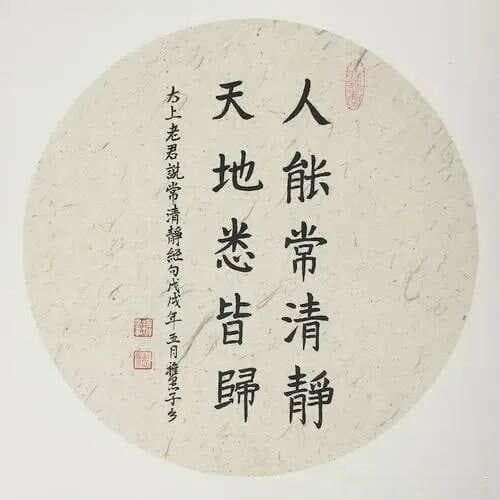 人能常清靜
天地悉皆歸
太上老君說常清靜經句戊戌年五月雅思子